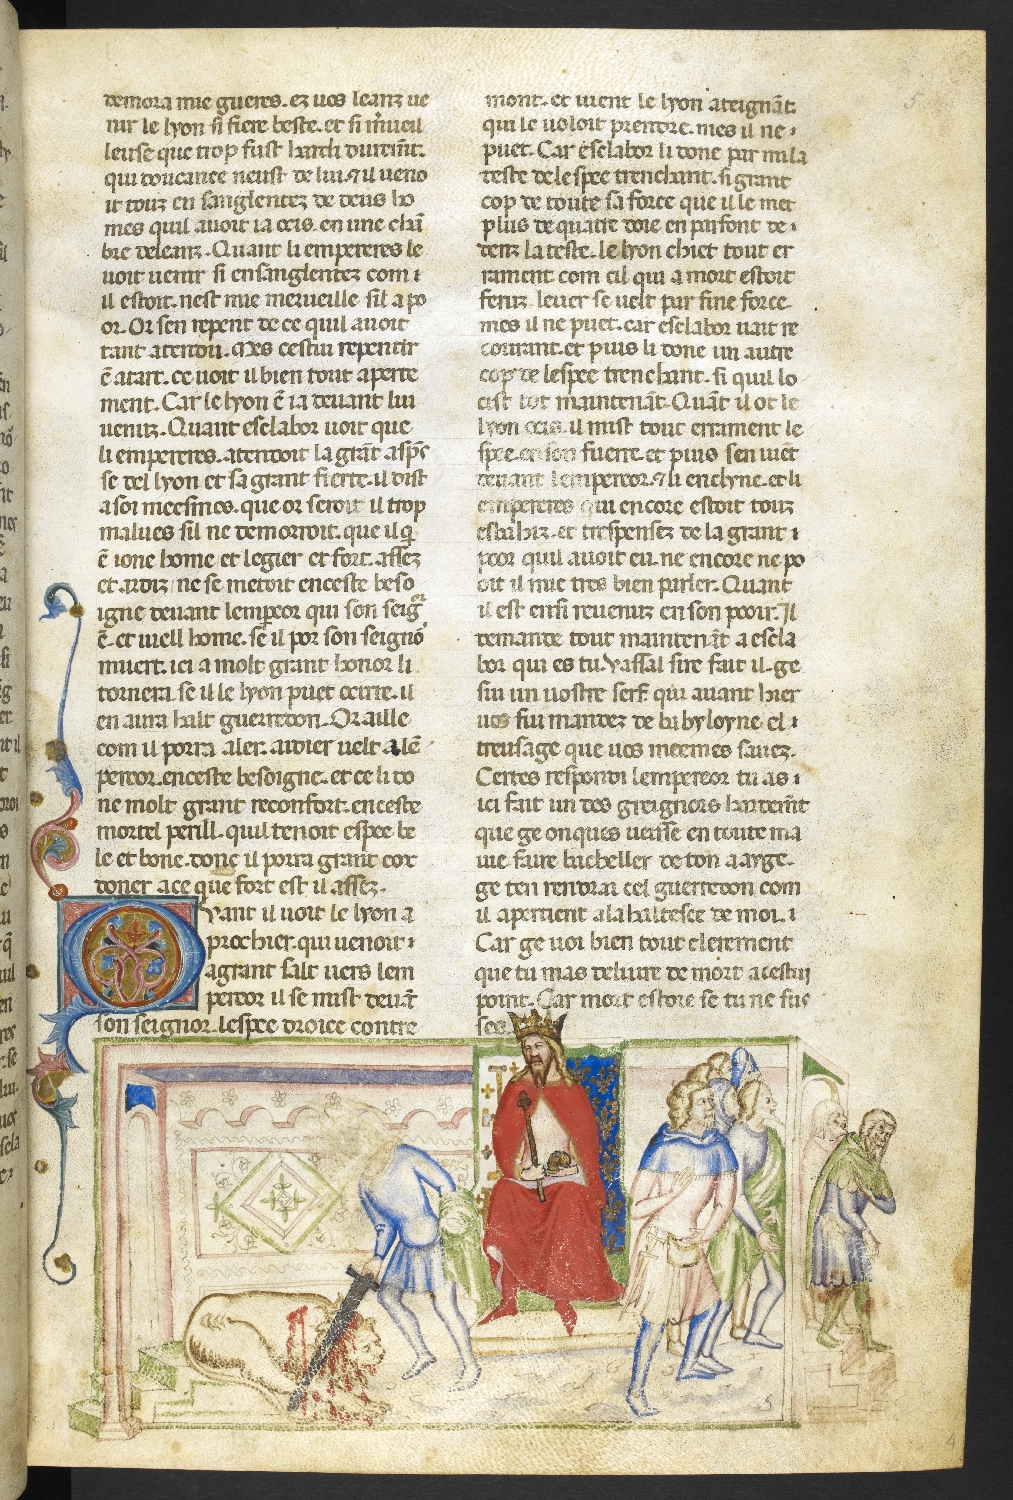 demora mie gueres. ez uos leanz ue
nir le lyon si fiere beste. et si m̃ueil
leuse que trop fust hardi durem̃t.
qui doutance neust de lui. ⁊ il ueno
it touz en sanglentez de deus ho
mes quil auoit ia ocis. en une chã
bre deleanz. Quant li empereres le
uoit uenir si ensanglentez com ı
il estoit. nest mie merueille sil a po
or. Or sen repent de ce quil auoit
tant atendu. Mes cestui repentir
ẽ atart. ce uoit il bien tout aperte
ment. Car le lyon ẽ ia deuant lui
uenuz. Quant esclabor uoit que
li empereres. atendoit la grãt aspre
se del lyon et sa grant fierte. il dist
a soi meesmes. que or seroit il trop
malues sil ne demorroit. que il q̃
ẽ ione home et legier et fort. assez
et ardiz ne se metoit enceste beso
igne deuant lempeor qui son seigr̃
ẽ. et uiell home. se il por son seignõ
muert. ici a molt grant honor li
tornera. se il le lyon puet ocirre. il
en aura halt guerredon. Or aille
com il porra aler. aidier uelt a lẽ
pereor. enceste besoigne. et ce li do
ne molt grant reconfort. enceste
mortel perill. quil tenoit espee be
le et bone. donc il porra grant cox
doner a ce que fort est il assez.
Qvant il uoit le lyon a
prochier. qui uenoit ı
a grant salt uers lem
pereor il se mist deuãt
son seignor. lespee droite contre
mont. et uient le lyon ateignãt.
qui le uoloit prendre. mes il ne ı
puet. Car esclabor li done par mi la
teste de lespee trenchant. si grant
cop de toute sa force que il le met
plus de quatre doie en parfont de ı
denz la teste. le lyon chiet tout er
rament com cil qui a mort estoit
feruz. leuer se uelt par fine force
mes il ne puet. car esclabor uait re
courant. et puis li done un autre
cop de lespee trenchant. si quil lo
cist tot maintenãt. Quãt il ot le
lyon ocis. il mist tout errament le
spee en son fuerre. et puis sen uiet
deuant lempereor. ⁊ li enclyne. et li
empereres qui encore estoit touz
esbahiz. et trespensez de la grant ı
peor quil auoit eu. ne encore ne po
oit il mie tres bien parler. Quant
il est ensi reuenuz en son pooir. Il
demande tout maintenãt a escla
bor qui es tu. Vassal sire fait il. ge
sui un uostre serf. qui auant hier
uos fui mandez de babyloyne el ı
treusage que uos meemes sauez.
Certes respondi lempereor tu as ı
ici fait un des greignors hardem̃t
que ge onques ueisse en toute ma
uie faire bacheller de ton aayge.
ge ten rendrai cel guerredon com
il apertient a la haltesce de moi. ı
Car ge uoi bien tout clerement
que tu mas deliure de mort a cestui
point. Car mort estoie se tu ne fus
ses.
5
4